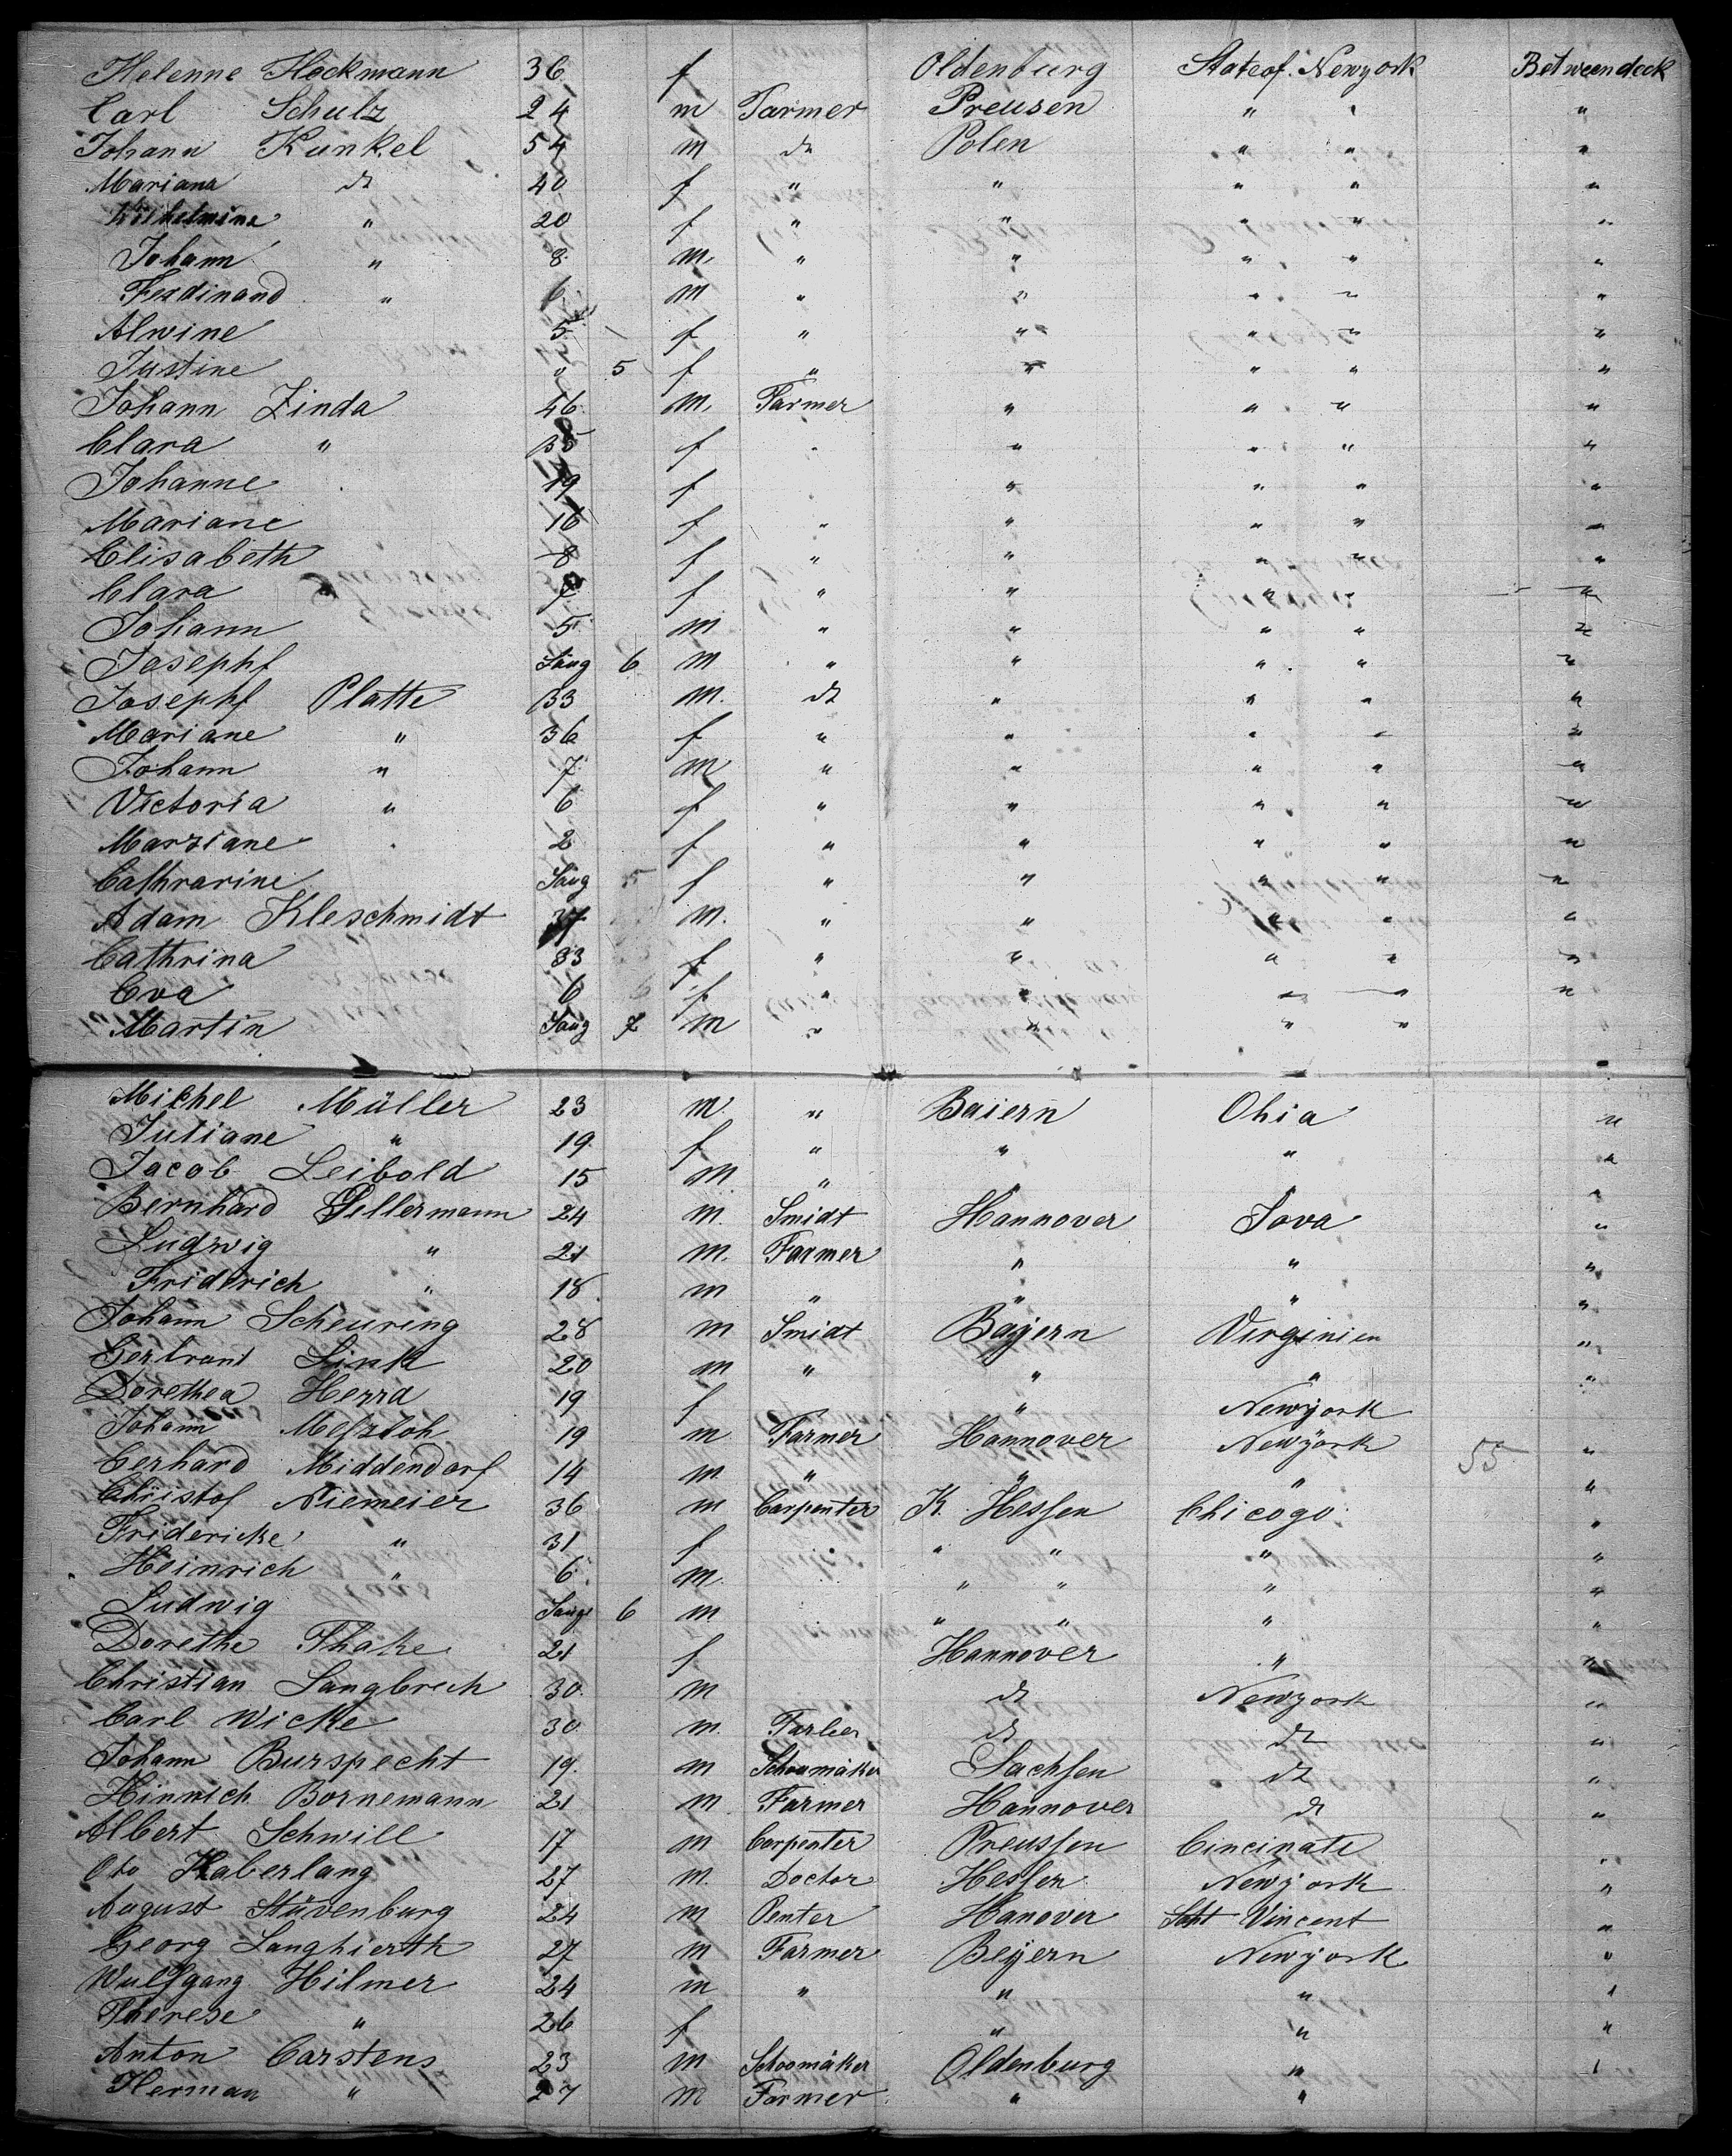 Helenne Heckmann 36 f Oldenburg State of. Newyork Betweendeck
Carl Schulz 24 m Farmer Preusen " " "
Johann Kunkel 54 m do Polen " " "
Mariana do 40 f " " " " "
Wilhelmine " 20 f " " " " "
Johann " 8 m " " " " "
Ferdinand " 6 m " " " " "
Alwine 5 f " " " " "
Justine " 5 f " " " " "
Johann Zinda 46 m Farmer " " " "
Clara " 35 f " " " " "
Johanne 19 f " " " "
Mariane 16 f " " " " "
Elisabeth 8 f " " " " "
Clara 7 f " " " " "
Johann 5 m " " " " "
Josephf Säug 6 m " " " " "
Josephf Platte 33 m. do " " " "
Mariane " 36 f " " " " "
Johann " 7 m " " " " "
Victoria " 6 f " " " " "
Marziane 2 f " " " " "
Cathrarine Säug 5 f " " " " "
Adam Kleschmidt 37 m. " " " " "
Cathrina 33 f " " " " "
Eva 6 f " " " " "
Martin Säug 7 m " " " "
Michel Müller 23 m. " Baiern Ohia "
Juliane " 19 f " " " "
Jacob Leibold 15 m " " " "
Bernhard Sellermann 24 m. Smidt Hannover Iova "
Ludwig " 21 m. Farmer " " "
Friderich " 18 m " " " "
Johann Scheuring 28 m Smidt Bayern Virginien "
Gertrand Link 20 m " " " "
Dorethea Herrd 19 f " Newyork
Johann 19 m Farmer Hannover Newyork 55 "
Gerhard Middendorf 14 m " " " "
Christof Niemeier 36 m Carpenter K. Hessen Chicogo "
Fridericke " 31 f " " " "
Heinrich " 6 m. " " " "
Ludwig Säug 6 m " " " "
Dorethe Thake 21 f Hannover " "
Christian Langbrech 30 m do Newyork "
Carl Wicke 30 m Farber do do "
Johann Burspecht 19. m Schoumäker Sachsen do "
Hinrich Bornemann 21 m Farmer Hannover do "
Albert Schwill 17 m Carpenter Preussen Cincinate "
Oto Haberlang 27 m. Doctor Hessen Newyork "
August Stüvenburg 24 m Penter Hanover Scht Vincent "
Georg Langhierth 27 m Farmer Beyern Newyork "
Wulfgang Hilmer 24 m " " " "
Therese " 26 f " " "
Anton Carstens 23 m Schoomäker Oldenburg " "
Herman " 27 m Farmer " "